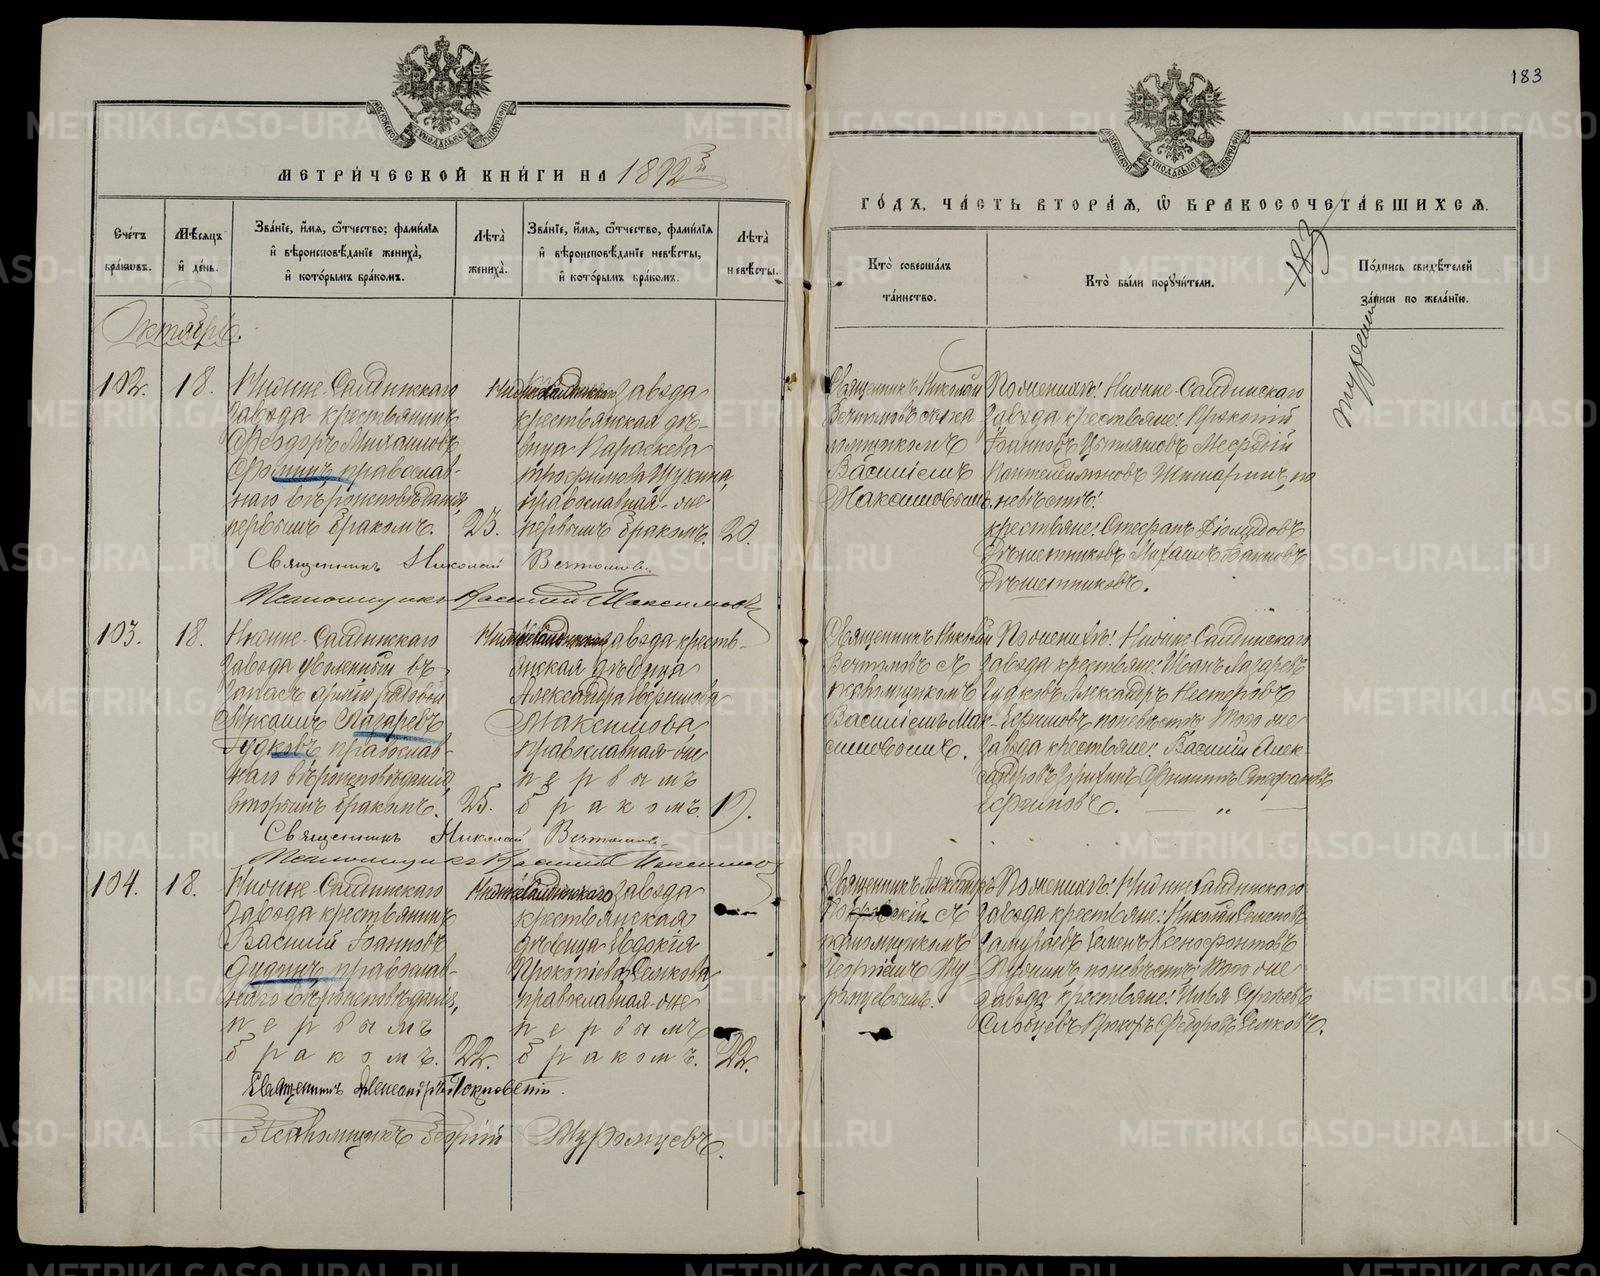 183
МОСКОВСКОЙ СѴНОДАЛЬНОЙ ТИПОГРАФІИ
МОСКОВСКОЙ СѴНОДАЛЬНОЙ ТИПОГРАФІИ
МЕТРИ́ЧЕСКОЙ КНИ́ГИ НА 1892й
ГО́ДЪ, ЧА́СТЬ ВТОРА́Я, Ѡ БРАКОСОЧЕТА́ВШИХСЯ.
Сче́тъ бра́ковъ.
Мѣ́сяцъ и̂ де́нь.
Зва́нїе, и҆́мя, ѻ҆́тчество, фами́лїя и̂ вѣроисповѣ́данїе жениха̀, и̂ кото́рымъ бра́комъ.
Лѣта̀ жениха̀.
Зва́нїе, и҆́мя, ѻ҆́тчество, фами́лїя и̂ вѣроисповѣ́данїе невѣ́сты, и̂ кото́рымъ бра́комъ.
Лѣта̀ невѣ́сты.
Кто̀ соверша́лъ та́инство.
Кто̀ бы́ли порꙋчи́тели.
По́дпись свидѣ́телей за́писи по жела́нїю.
183
Октябрь.
102.
18.
Нижне-Салдинскаго
завода крестьянинъ
Ѳеодоръ Михаиловъ
православ-
наго вѣроисповѣданія,
первымъ бракомъ.
23.
Нижнесалдинскаго завода
крестьянская дѣ-
вица Параскева
Трофимова Щукина,
православная-же
первымъ бракомъ.
20.
Священникъ Николай
Вечтомовъ съ пса
ломщикомъ
Василіемъ
Максимовымъ
По женихѣ: Нижне-Салдинскаго
завода крестьяне: Прокопій
Іоанновъ
Пантелеимоновъ по
невѣстѣ:
крестьяне: Стефанъ Діомидовъ
Михаилъ Іоанновъ
Священникъ Николай Вечтомовъ.
Псаломщикъ Василій Максимовъ
103.
18.
Нижне-Салдинскаго
завода уволенный въ
запасъ арміи рядовой
Михаилъ Лазаревъ
Гудковъ православ-
наго вѣроисповѣданія
вторымъ бракомъ.
25.
Нижнесалдинскаго завода кресть-
янская дѣвица
Александра
Максимова
православная-же
первымъ
бракомъ.
19.
Священникъ Николай
Вечтомовъ съ
псаломщикомъ
Василіемъ Мак-
симовымъ.
По женихѣ: Нижне-Салдинскаго
завода крестьяне: Иванъ Лазаревъ
Гудковъ Александръ Нестеровъ
по невѣстѣ: того же
завода крестьяне: Василій Алек-
сандровъ Филиппъ Стефановъ
„
Священникъ Николай Вечтомовъ.
Псаломщикъ Василій Максимовъ
104.
18.
Нижне-Салдинскаго
завода крестьянинъ
Василій Іоанновъ
православ-
наго вѣроисповѣданія,
первымъ
бракомъ.
22.
Нижнесалдинскаго завода
крестьянская
дѣвица Евдокія
Прокопіева Семкова,
православная-же
первымъ
бракомъ.
22.
Священникъ Александръ
Покровскій съ
псаломщикомъ
Георгіемъ Му-
ромцевымъ.
По женихѣ: Нижнесалдинскаго
завода крестьяне: Николай Семеновъ
Семенъ Ксенофонтовъ
по невѣстѣ: того же
завода крестьяне: Илья Сергѣевъ
Прокоръ Ѳедоровъ Семковъ.
Священникъ Александръ Покровскій.
Псаломщикъ Георгій Муромцевъ.
METRIKI.GASO-URAL.RU